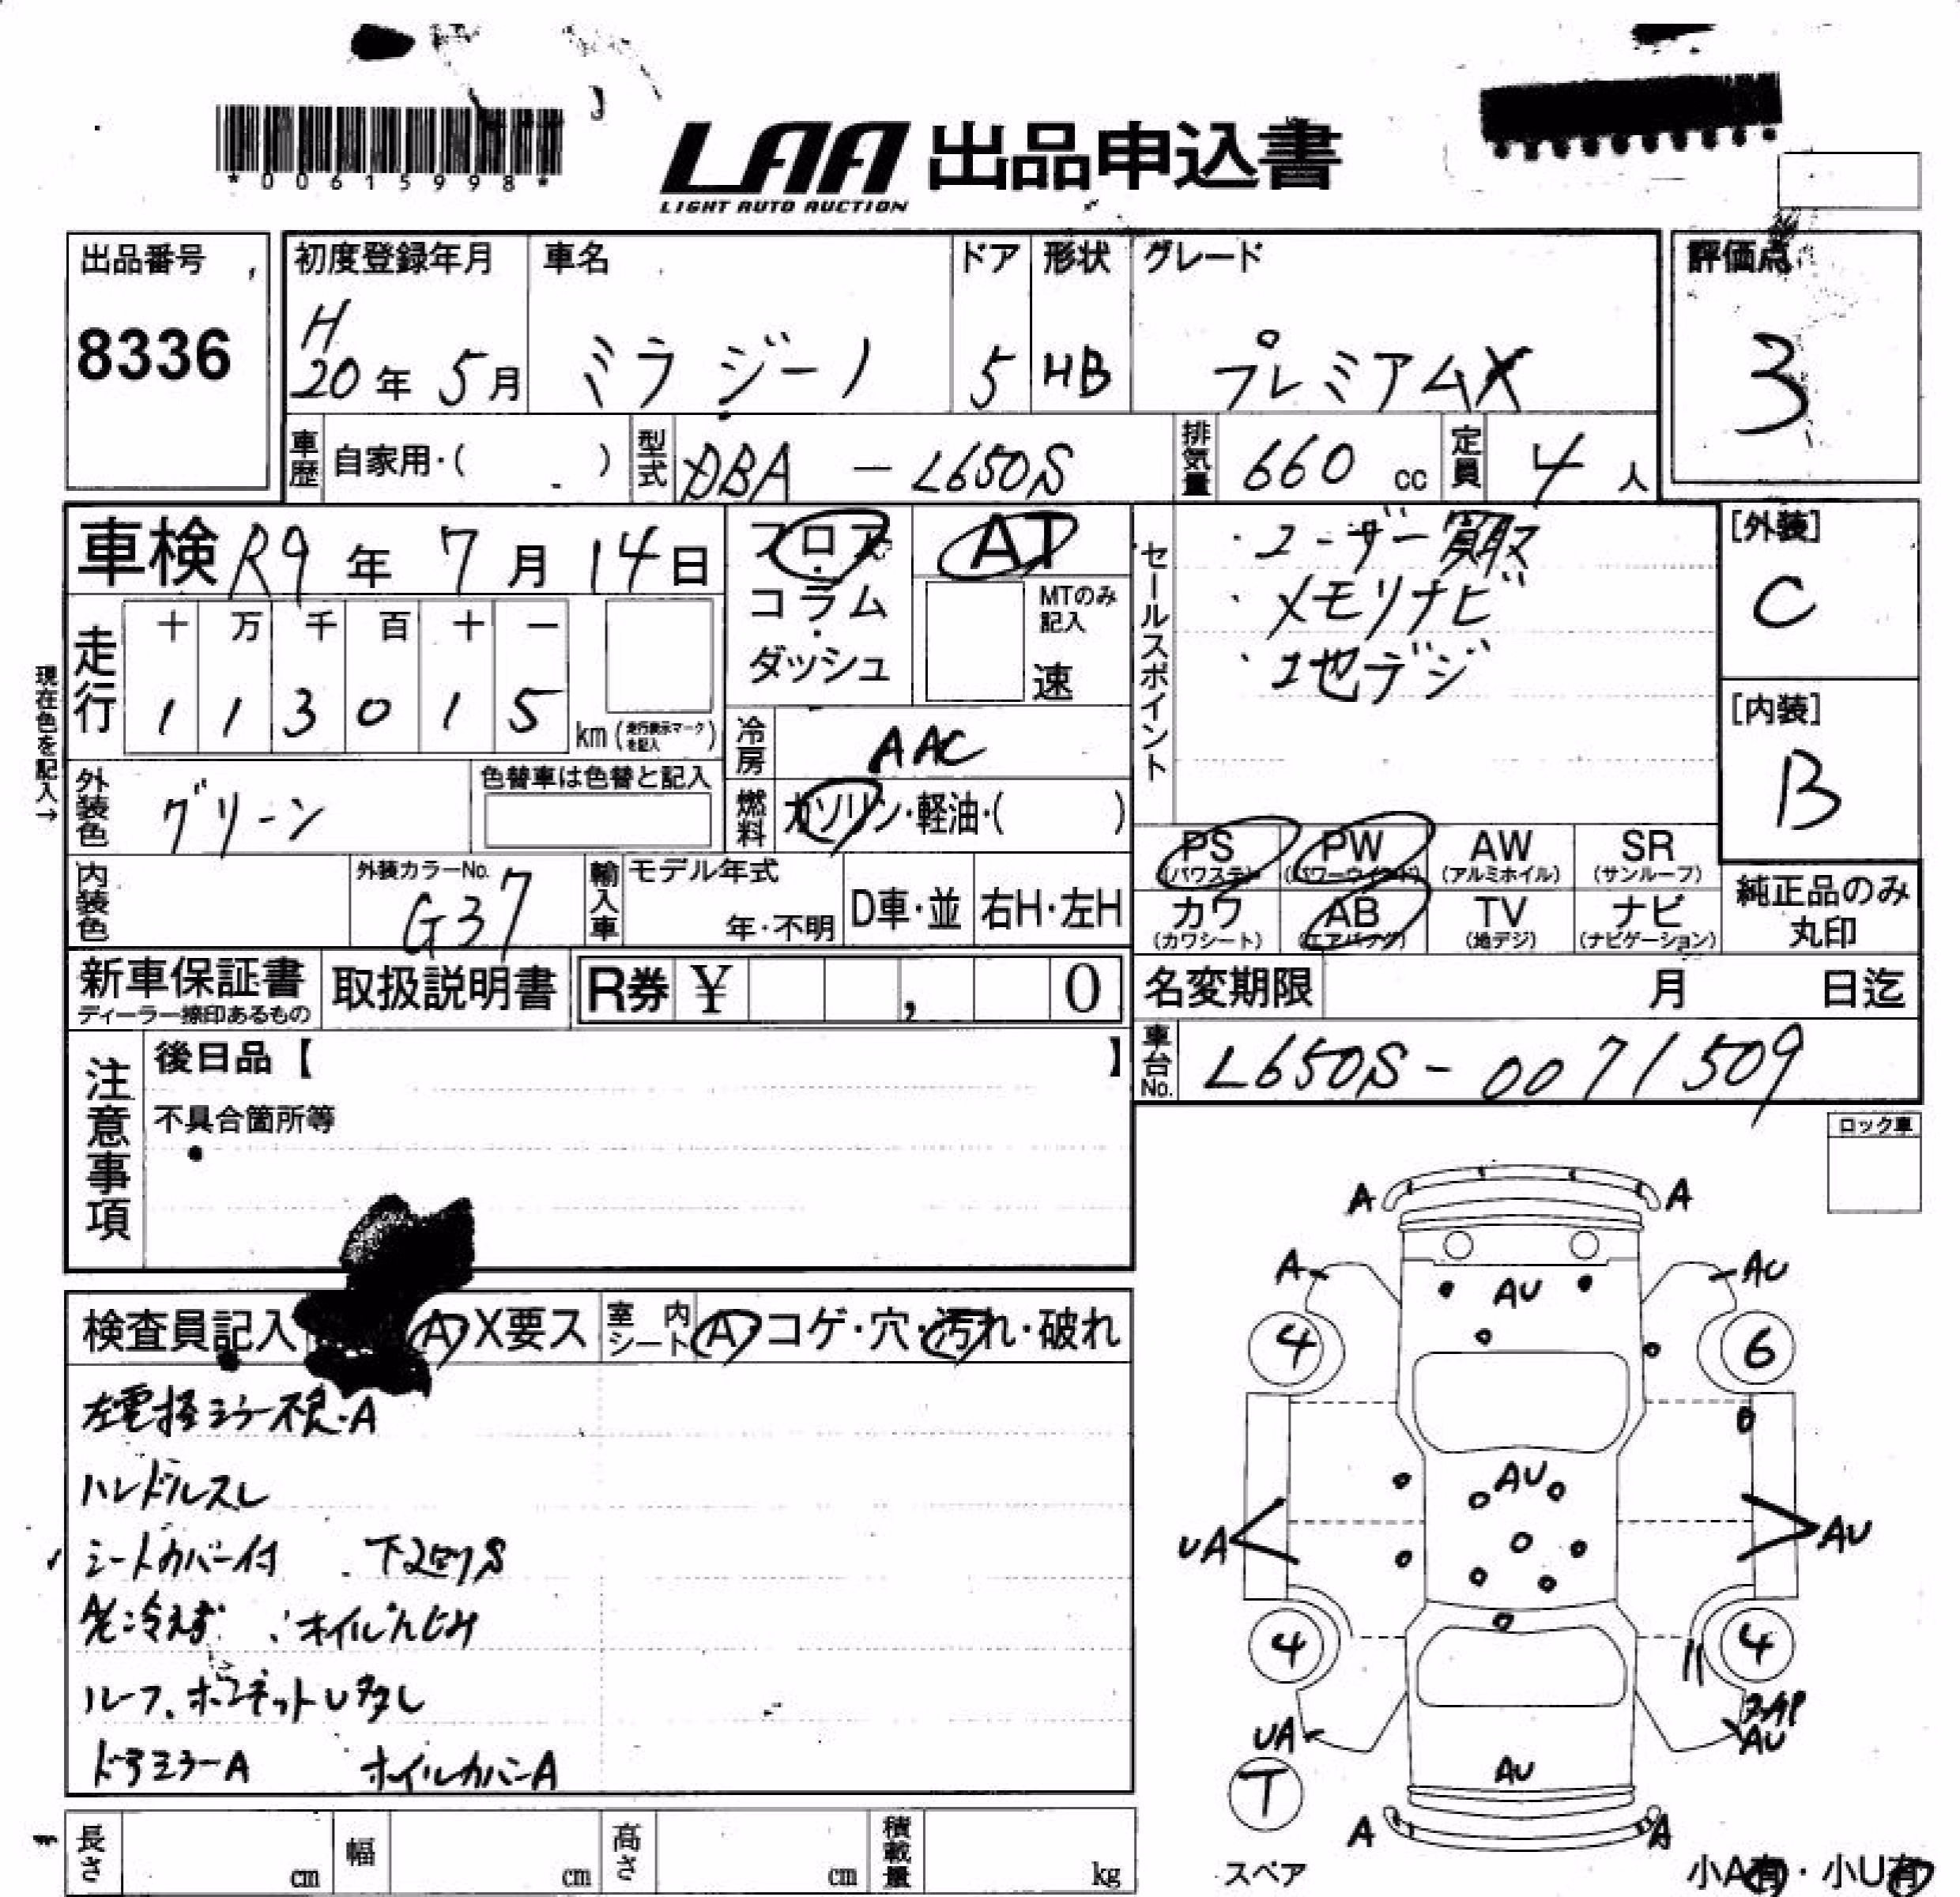 *00615998*
LAA 出品申込書
LIGHT AUTO AUCTION
出品番号
8336
初度登録年月
H
20年 5月
車名
ミラジーノ
ドア
5
形状
HB
グレード
プレミアムX
評価点
3
車歴
自家用・( )
型式
DBA - L650S
排気量
660 cc
定員
4 人
車検 R9年 7月 14日
フロア
・
コラム
・
ダッシュ
AT
MTのみ
記入
速
セールスポイント
・ユーザー買取
・メモリナビ
・地デジ
[外装]
C
[内装]
B
現在色を記入→
走行
十 万 千 百 十 一
1 1 3 0 1 5
km (走行表示マークを記入)
冷房
AAC
燃料
ガソリン・軽油・( )
外装色
グリーン
色替車は色替と記入
内装色
外装カラーNo.
G37
輸入車
モデル年式
年・不明
D車・並
右H・左H
PS
(パワステ)
PW
(パワーウインド)
AW
(アルミホイル)
SR
(サンルーフ)
カワ
(カワシート)
AB
(エアバッグ)
TV
(地デジ)
ナビ
(ナビゲーション)
純正品のみ
丸印
新車保証書
ディーラー捺印あるもの
取扱説明書
R券 ¥ , 0
名変期限 月 日迄
車台No.
L650S - 0071509
注意事項
後日品【 】
不具合箇所等
ロック車
検査員記入
A X要ス
室内
シート
A・コゲ・穴・汚れ・破れ
左電格ミラー不良・A
ハンドルスレ
シートカバー付 下廻りS
A/C冷えず オイルにじみ
ルーフ、ボンネットU多し
ドアミラーA ホイルカバーA
A A
A AU
AU
4 6
AU
UA AU
4 4
UA AU
AU
T
A A
スペア
小A有・小U有
長さ cm
幅 cm
高さ cm
積載量 kg